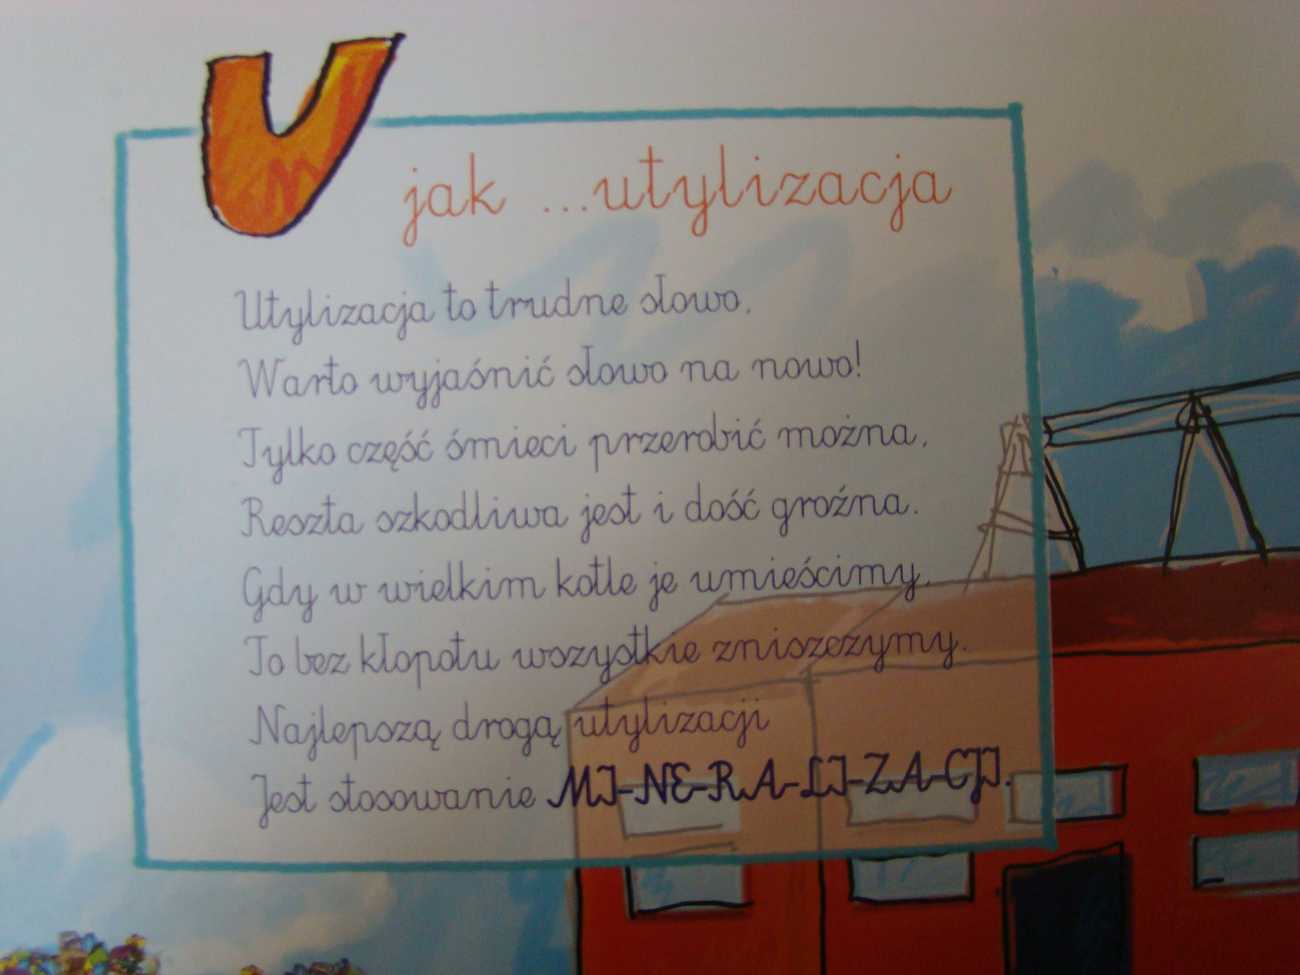 U jak ...utylizacja
Utylizacja to trudne słowo,
Warto wyjaśnić słowo na nowo!
Tylko część śmieci przerobić można,
Reszta szkodliwa jest i dość groźna.
Gdy w wielkim kotle je umieścimy,
To bez kłopotu wszystkie zniszczymy.
Najlepszą drogą utylizacji
Jest stosowanie MI-NE-RA-LI-ZA-CJI.